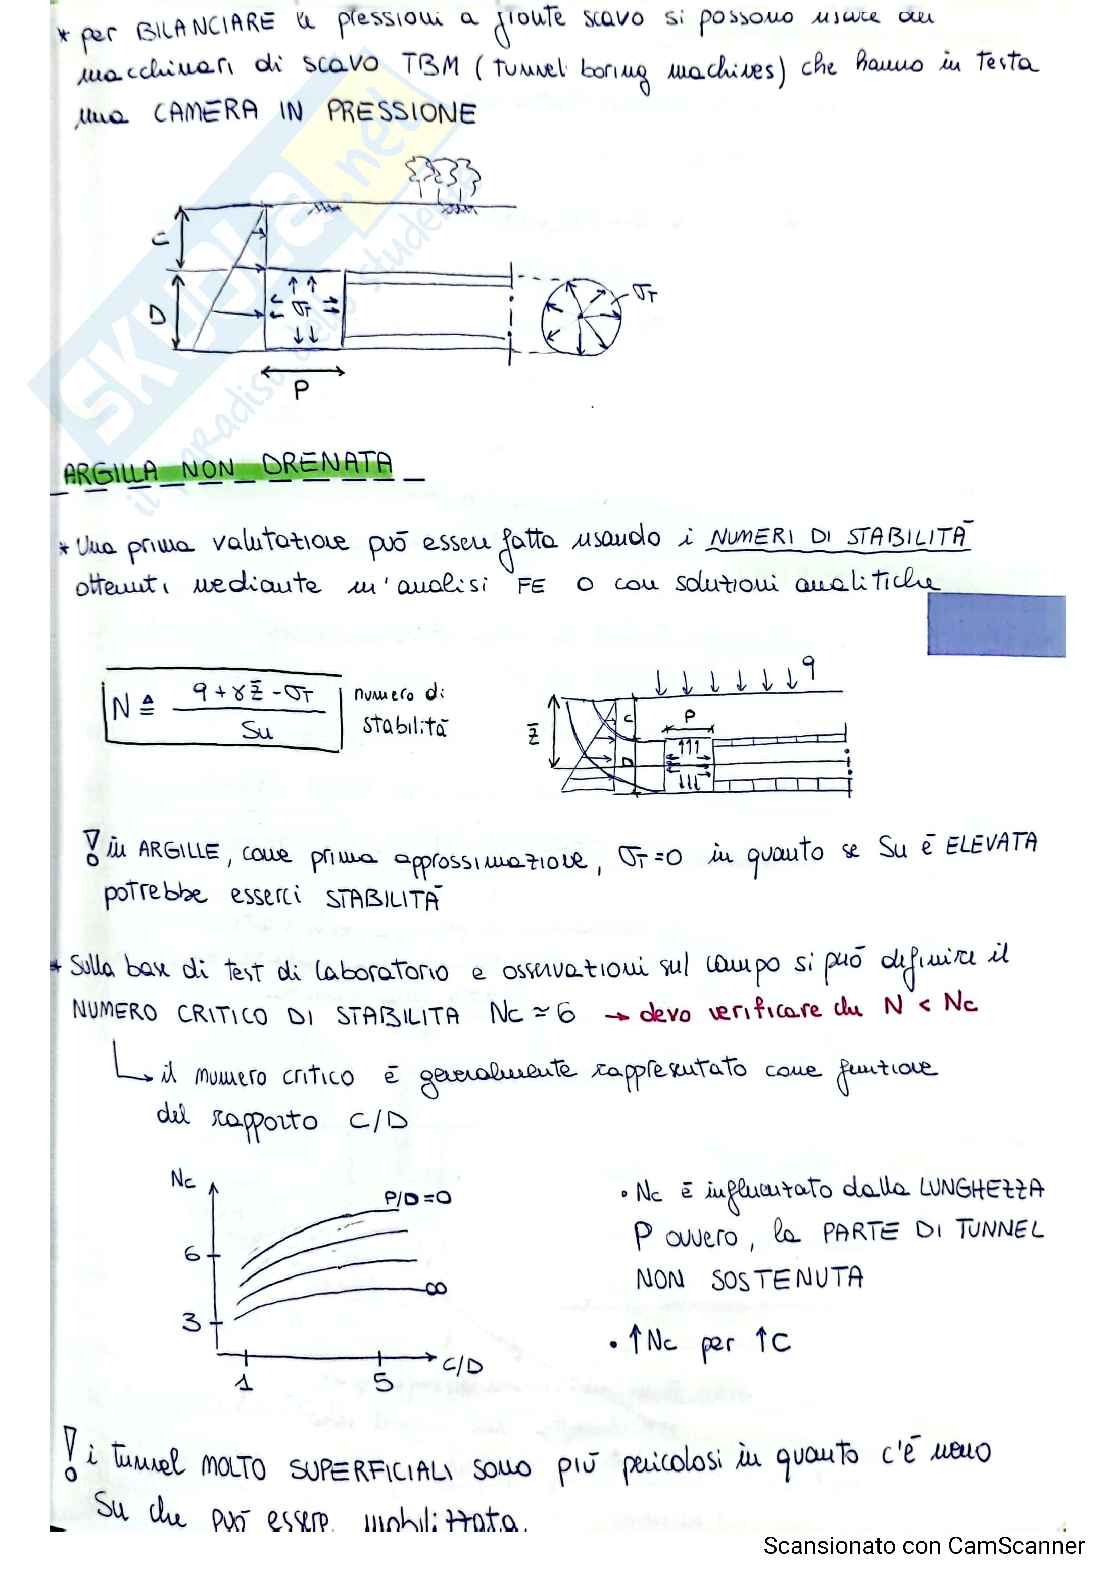 * per BILANCIARE le pressioni a fronte scavo si possono usare dei
macchinari di scavo TBM (tunnel boring machines) che hanno in testa
una CAMERA IN PRESSIONE
SKUOLA.net
il paradiso dello studente
C
D
σT
σT
P
ARGILLA NON DRENATA
* Una prima valutazione può essere fatta usando i NUMERI DI STABILITÀ
ottenuti mediante un'analisi FE o con soluzioni analitiche
N ≜ (q + γz̄ - σT) / Su
numero di
stabilità
q
z̄
C
P
D
! in ARGILLE, come prima approssimazione, σT=0 in quanto se Su è ELEVATA
potrebbe esserci STABILITÀ
* Sulla base di test di laboratorio e osservazioni sul campo si può definire il
NUMERO CRITICO DI STABILITÀ Nc ≃ 6 → devo verificare che N < Nc
il numero critico è generalmente rappresentato come funzione
del rapporto C/D
Nc
P/D=0
6
∞
3
1
5
C/D
• Nc è influenzato dalla LUNGHEZZA
P ovvero, la PARTE DI TUNNEL
NON SOSTENUTA
• ↑Nc per ↑C
! i tunnel MOLTO SUPERFICIALI sono più pericolosi in quanto c'è meno
Su che può essere mobilitzata.
Scansionato con CamScanner